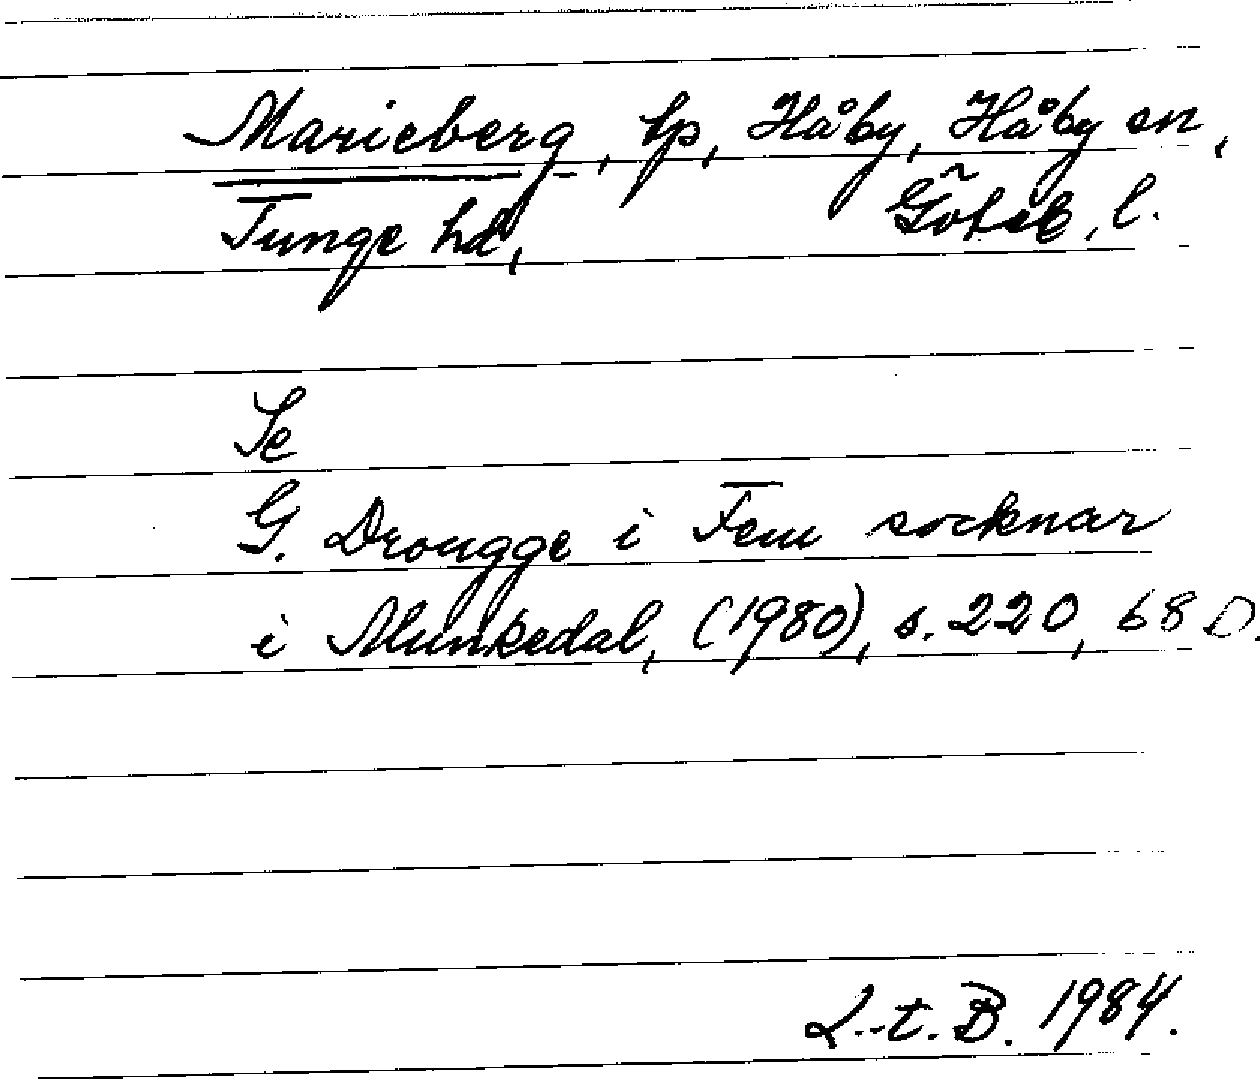 Marieberg, lp, Håby, Håby sn,
Tunge hd, Göteb. l.
Se
G. Drougge i Fem socknar
i Munkedal, (1980), s. 220, 68 D.
L.-t. B. 1984.